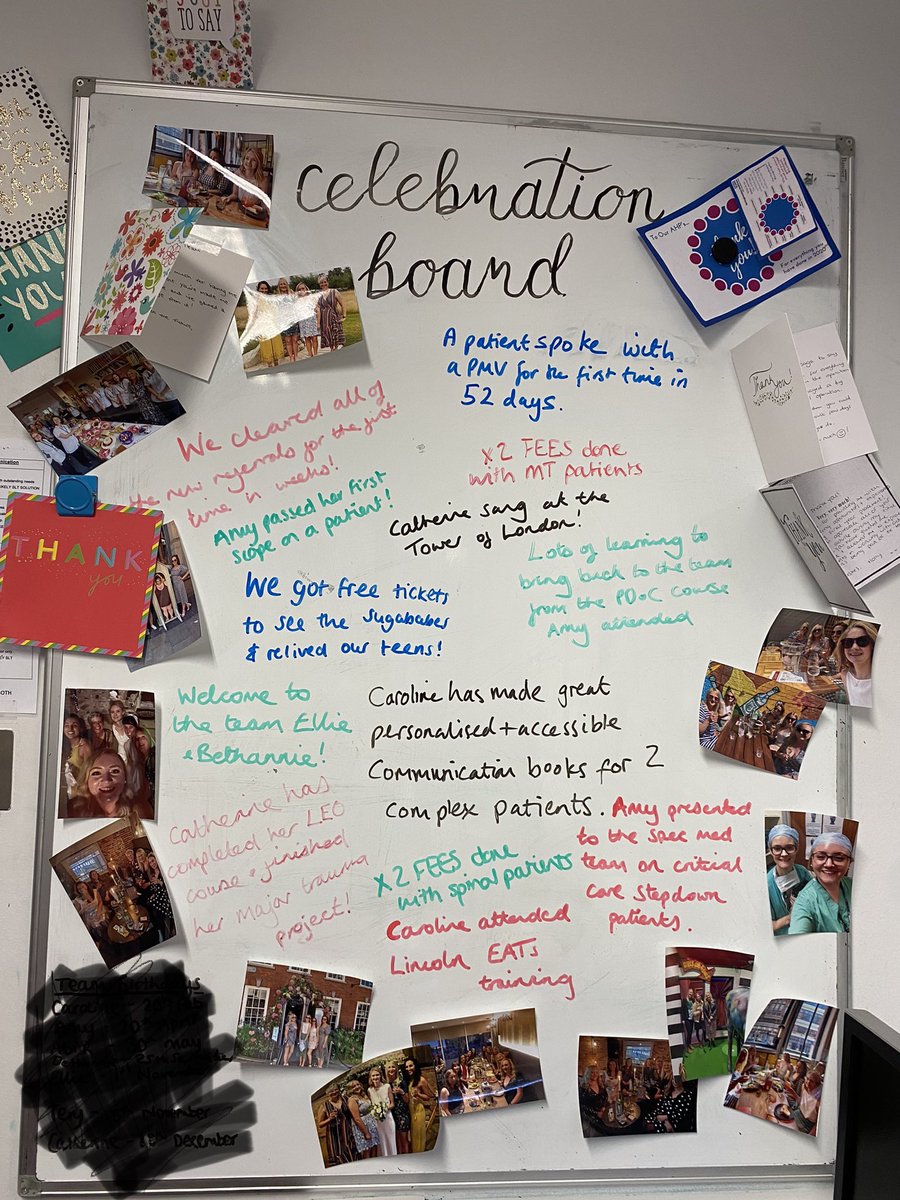 JUST
TO SAY
celebration
board
THANK
YOU!
To Our AHPs
thank
you!
For everything
you have done in 2020!
A patient spoke with
a PMV for the first time in
52 days.
Thank you!
We cleared all of
the new referrals for the first
time in weeks!
x2 FEES done
with MT patients
Amy passed her first
scope on a patient!
Catherine sang at the
Tower of London!
THANK
you
We got free tickets
to see the Sugababes
& relived our teens!
Lots of learning to
bring back to the team
from the PDoC course
Amy attended
Welcome to
the team Ellie
& Bethannie!
Caroline has made great
personalised + accessible
Communication books for 2
complex patients.
Catherine has
completed her LEO
course & finished
her major trauma
project!
x2 FEES done
with spinal patients
Amy presented
to the spec med
team on critical
care stepdown
patients.
Caroline attended
Lincoln EATs
training
Team Birthdays
May
November
Catherine
December